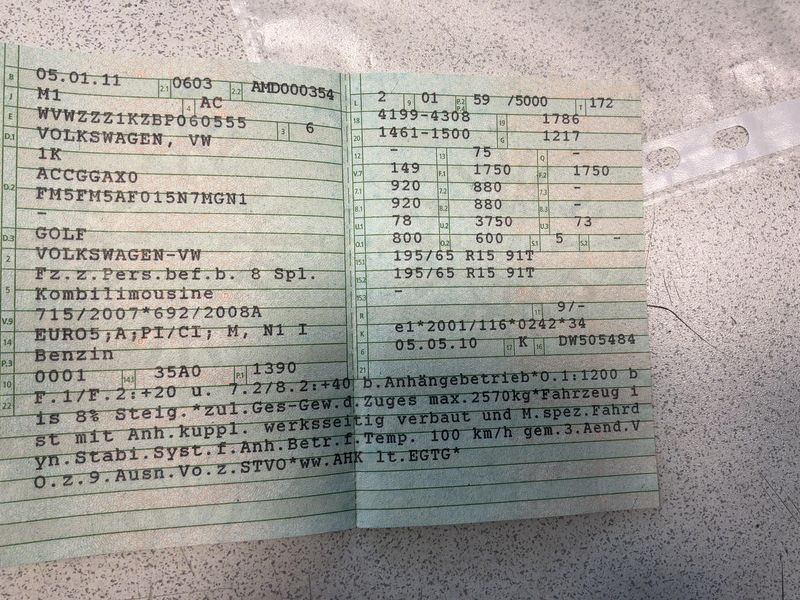 B 05.01.11 2.1 0603 2.2 AMD000354
J M1 4 AC
E WVWZZZ1KZBP060555 3 6
D.1 VOLKSWAGEN, VW
1K
D.2 ACCGGAX0
FM5FM5AF015N7MGN1
-
D.3 GOLF
2 VOLKSWAGEN-VW
5 Fz.z.Pers.bef.b. 8 Spl.
Kombilimousine
V.9 715/2007*692/2008A
14 EURO5;A;PI/CI; M, N1 I
P.3 Benzin
10 0001 14.1 35A0 P.1 1390
L 2 9 01 P.2 P.4 59 /5000 T 172
18 4199-4308 19 1786
20 1461-1500 G 1217
12 - 13 75 Q -
V.7 149 F.1 1750 F.2 1750
7.1 920 7.2 880 7.3 -
8.1 920 8.2 880 8.3 -
U.1 78 U.2 3750 U.3 73
O.1 800 O.2 600 S.1 5 S.2 -
15.1 195/65 R15 91T
15.2 195/65 R15 91T
15.3 -
R 11 9/-
K e1*2001/116*0242*34
6 05.05.10 17 K 16 DW505484
21
22 F.1/F.2:+20 u. 7.2/8.2:+40 b.Anhängebetrieb*O.1:1200 b
is 8% Steig.*zul.Ges-Gew.d.Zuges max.2570kg*Fahrzeug i
st mit Anh.kuppl. werksseitig verbaut und M.spez.Fahrd
yn.Stabi.Syst.f.Anh.Betr.f.Temp. 100 km/h gem.3.Aend.V
O.z.9.Ausn.Vo.z.STVO*ww.AHK lt.EGTG*